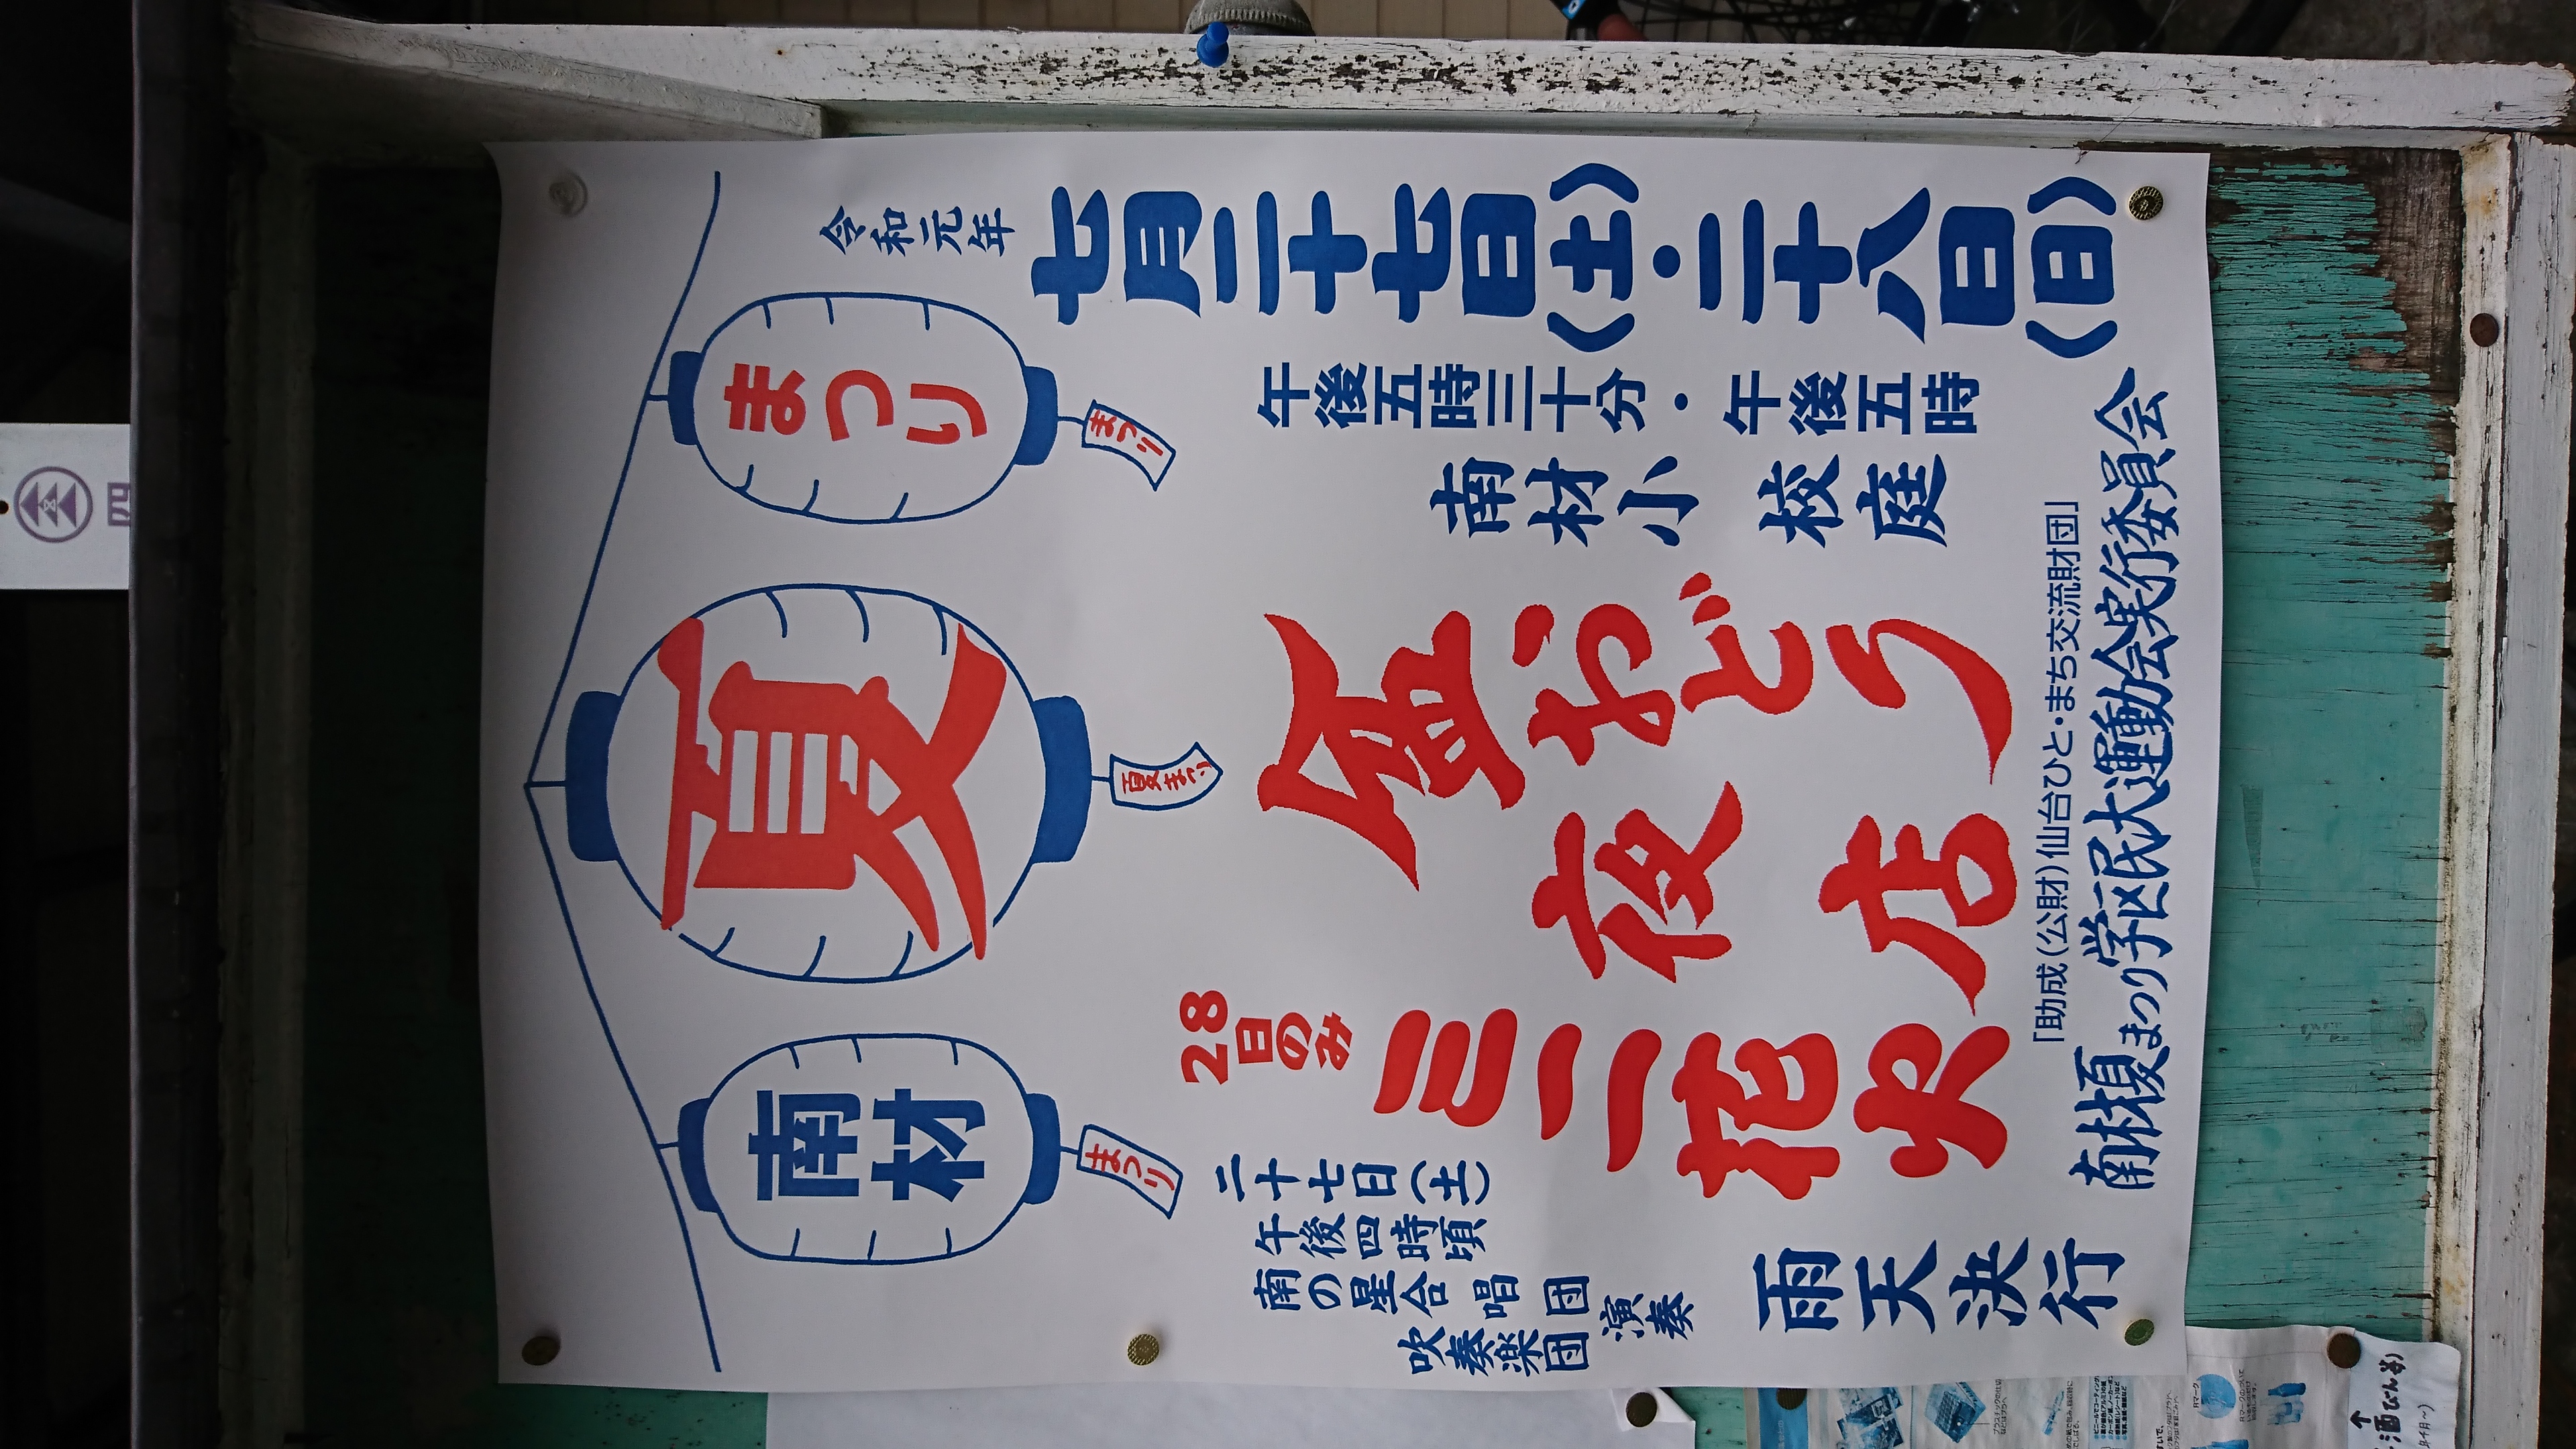 南材
夏
まつり
まつり
夏まつり
まつり
令和元年
七月二十七日(土)・二十八日(日)
午後五時三十分・午後五時
南材小 校庭
盆おどり
夜店
28日のみ
ミニ花火
二十七日(土)
午後四時頃
南の星合唱団
吹奏楽団
演奏
雨天決行
「助成(公財)仙台ひと・まち交流財団」
南材夏まつり学区民大運動会実行委員会
四